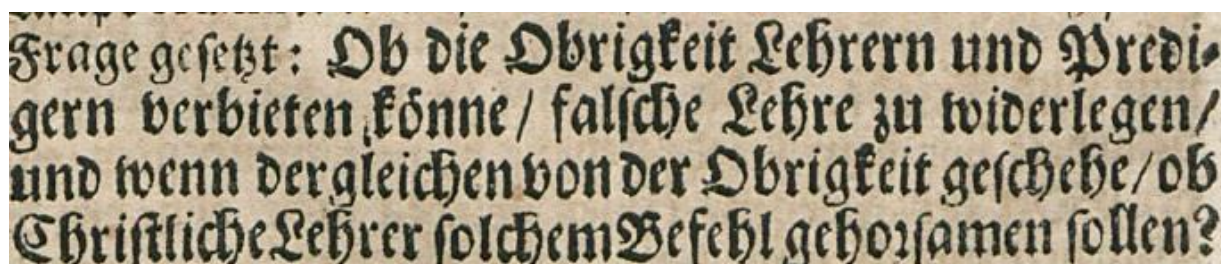 Frage gesetzt: Ob die Obrigkeit Lehrern und Predi-
gern verbieten könne/ falsche Lehre zu widerlegen/
und wenn dergleichen von der Obrigkeit geschehe/ ob
Christliche Lehrer solchem Befehl gehorsamen sollen?